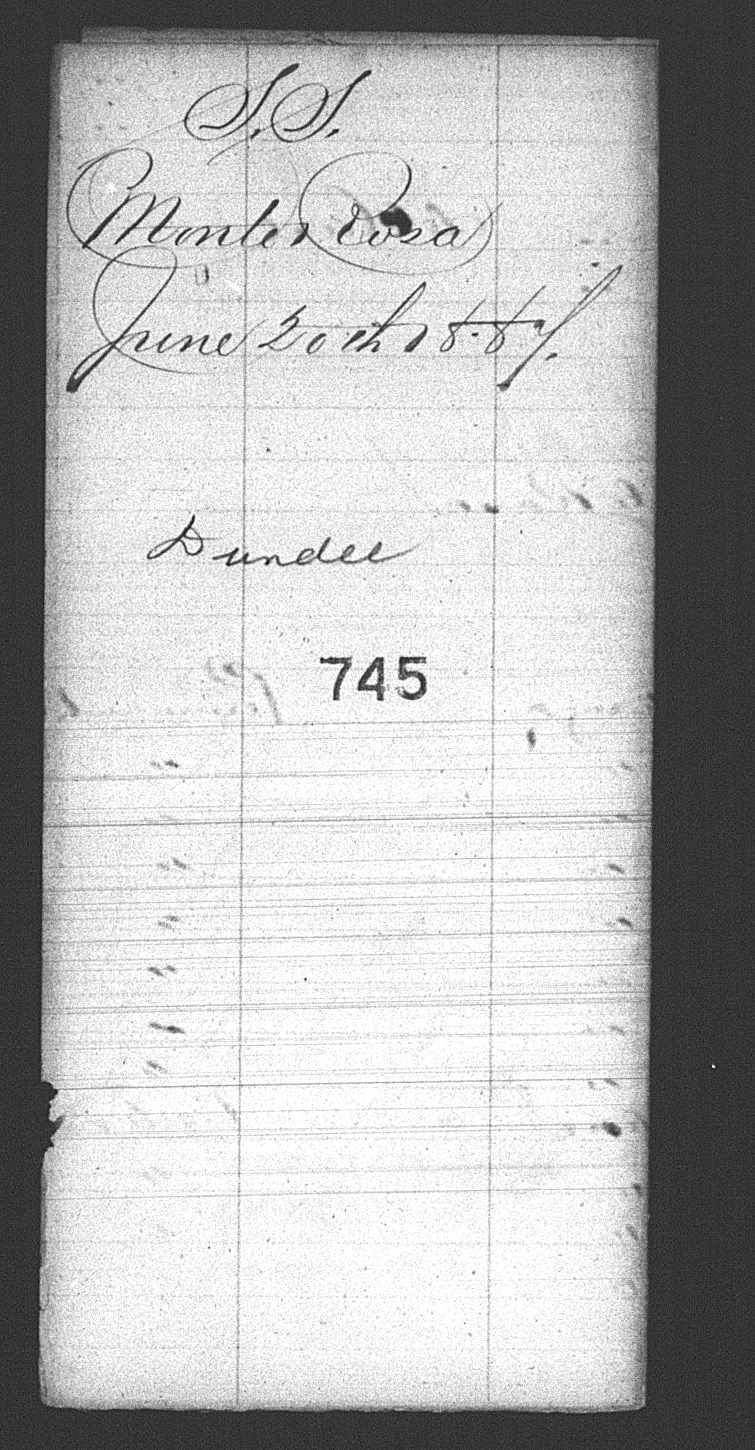 S.S.
Monte Rosa
June 20th 1887.
Dundee
745